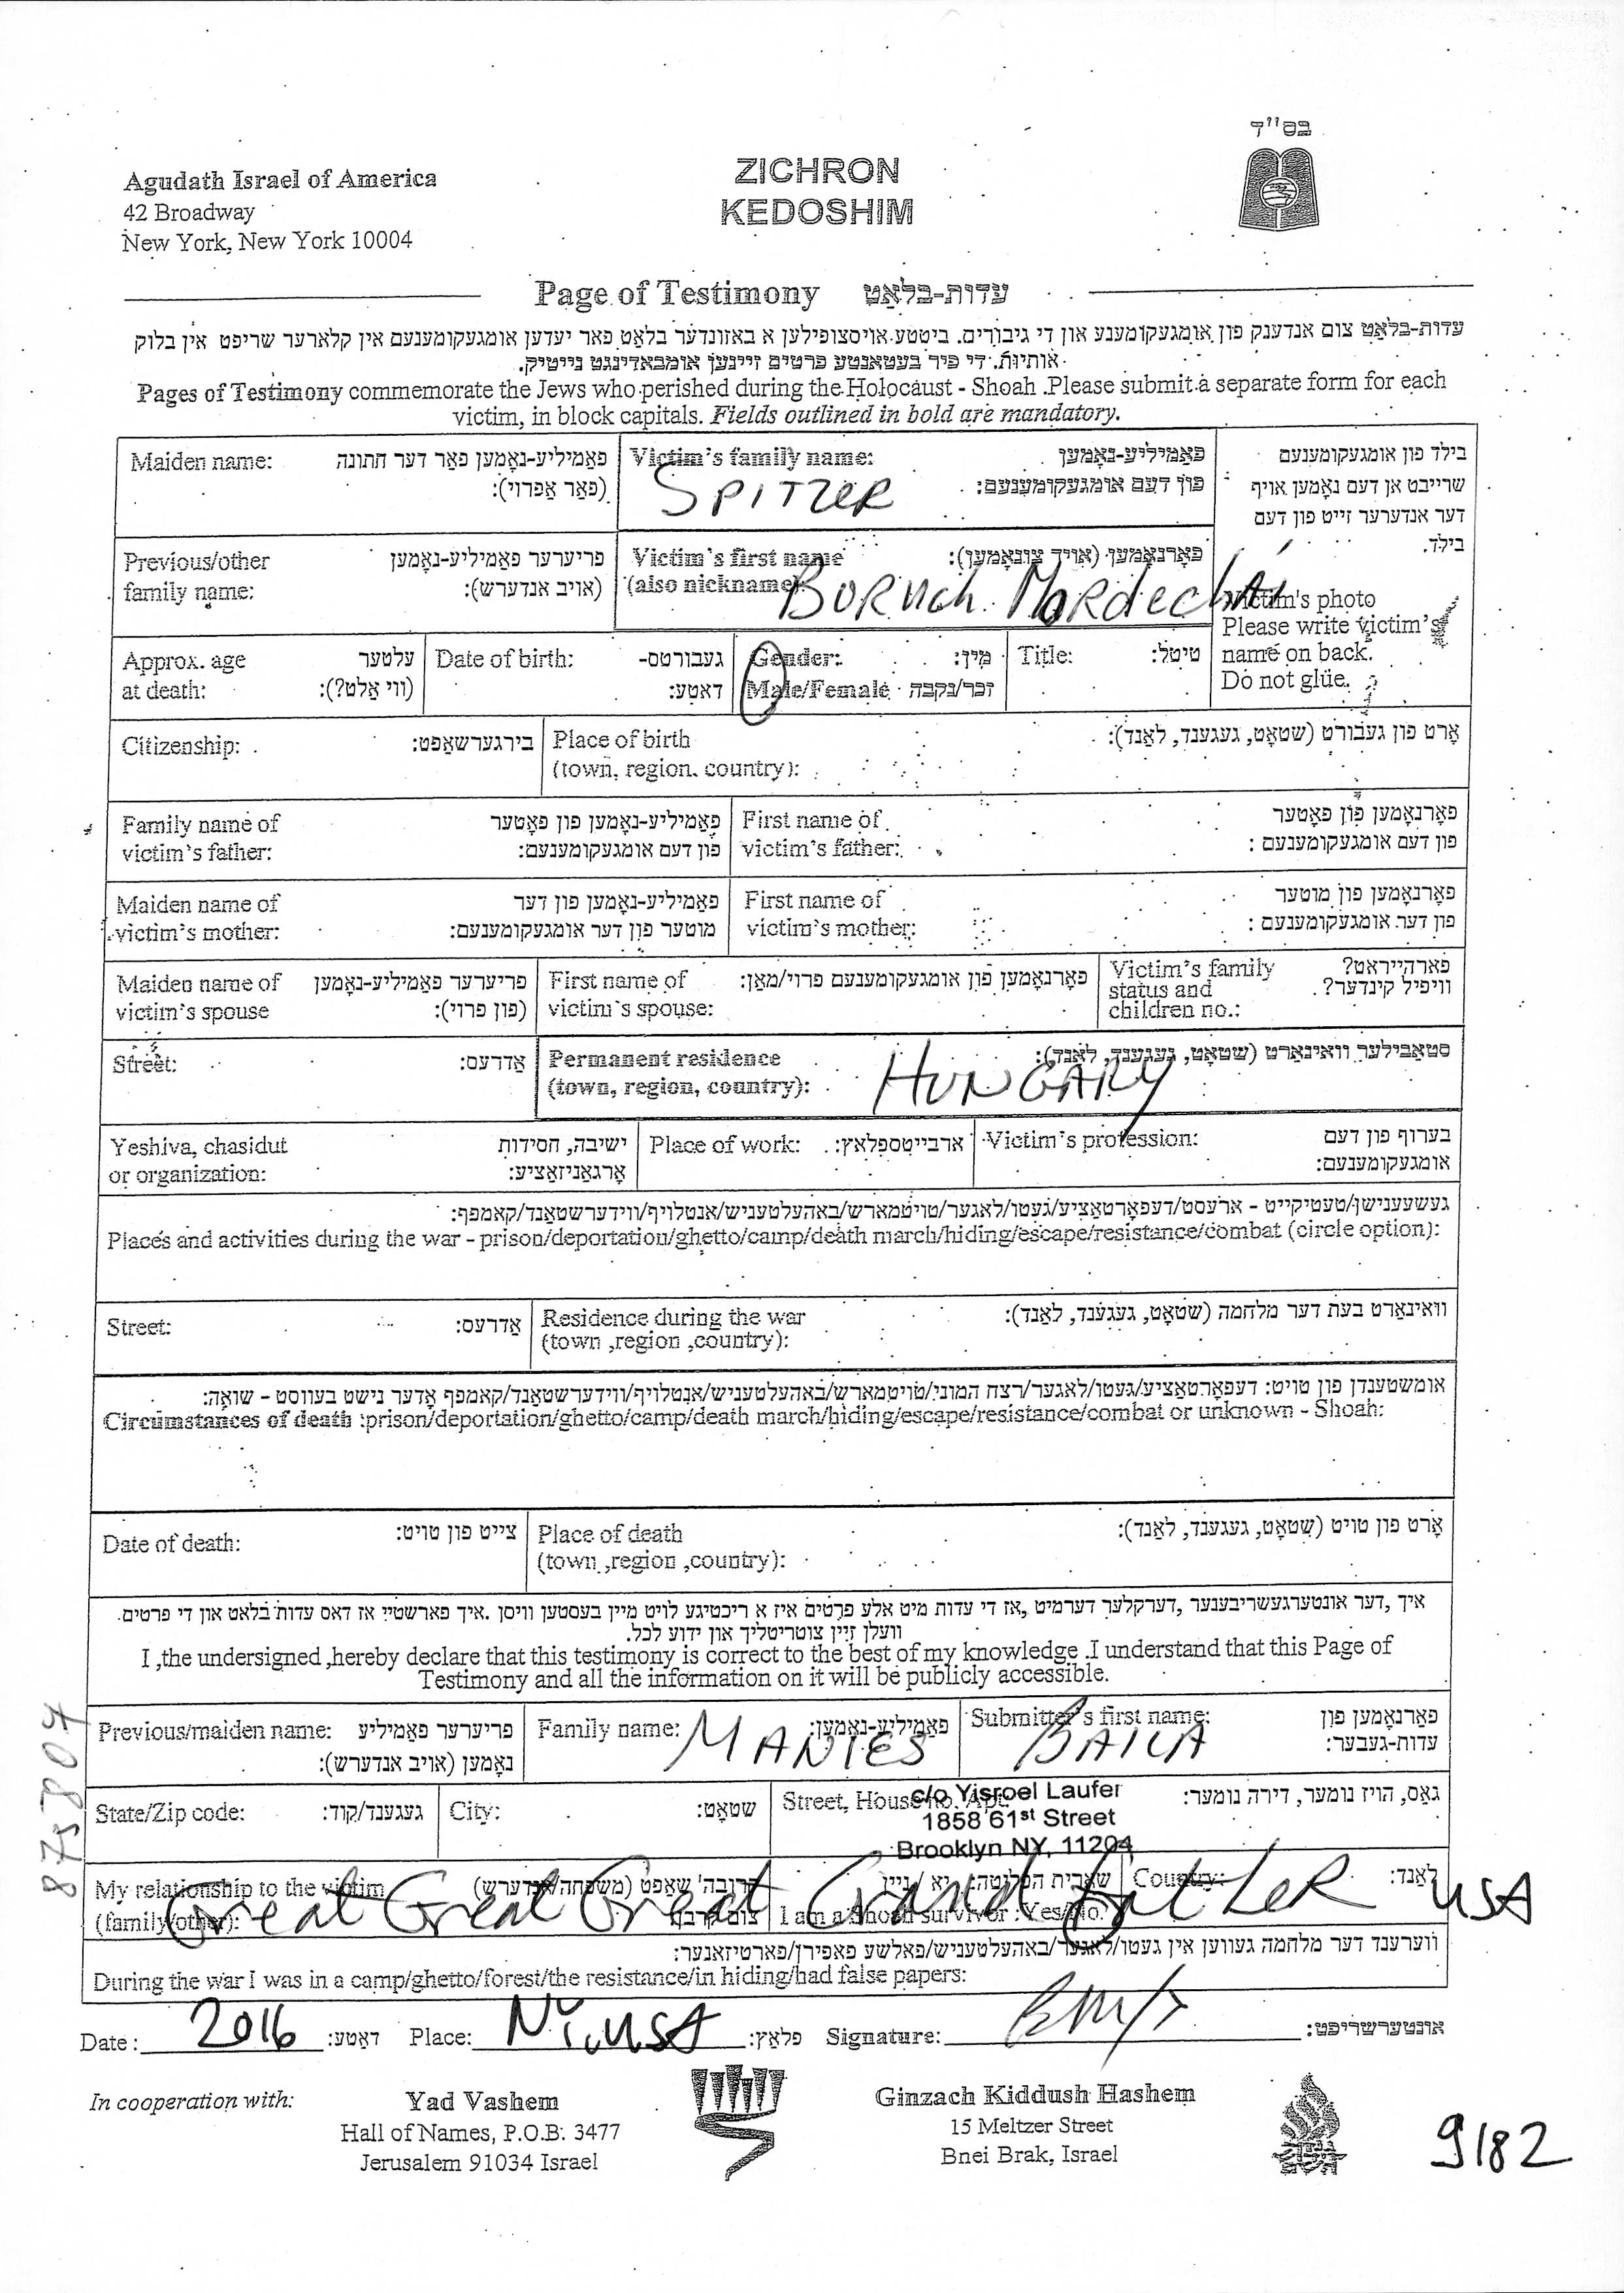 בס"ד
Agudath Israel of America
42 Broadway
New York, New York 10004
ZICHRON
KEDOSHIM
Page of Testimony עדות-בלאַט
עדות-בלאַט צום אנדענק פון אומגעקומענע און די גיבורים. ביטטע אויסצופילען א באזונדער בלאַט פאר יעדען אומגעקומענעם אין קלארער שריפט אין בלוק
אותיות. די פיר בעטאָנטע פרטים זיינען אומבאדינגט נייטיק.
Pages of Testimony commemorate the Jews who perished during the Holocaust - Shoah .Please submit a separate form for each
victim, in block capitals. Fields outlined in bold are mandatory.
Maiden name: פאַמיליע-נאָמען פאַר דער חתונה
(פאַר אַפרוי):
Victim's family name: פאַמיליע-נאָמען
פון דעם אומגעקומענעם:
SPITZER
בילד פון אומגעקומענעם
שרייבט אן דעם נאָמען אויף
דער אנדערער זייט פון דעם
בילד.
Victim's photo
Please write victim's
name on back.
Do not glue.
Previous/other פריערער פאַמיליע-נאָמען
family name: (אויב אנדערש):
Victim's first name פאָרנאָמען (אויך צונאָמען):
(also nickname)
Boruch Mordechai
Approx. age עלטער
at death: (ווי אַלט?):
Date of birth: געבורטס-
דאַטע:
Gender: מין:
Male/Female זכר/נקבה
Title: טיטל:
Citizenship: בירגערשאַפט:
Place of birth אָרט פון געבורט (שטאָט, געגענד, לאַנד):
(town, region, country):
Family name of פאַמיליע-נאָמען פון פאָטער
victim's father: פון דעם אומגעקומענעם:
First name of פאָרנאָמען פון פאָטער
victim's father: פון דעם אומגעקומענעם :
Maiden name of פאַמיליע-נאָמען פון דער
victim's mother: מוטער פון דער אומגעקומענעם:
First name of פאָרנאָמען פון מוטער
victim's mother: פון דער אומגעקומענעם :
Maiden name of פריערער פאַמיליע-נאָמען
victim's spouse (פון פרוי):
First name of פאָרנאָמען פון אומגעקומענעם פרוי/מאַן:
victim's spouse:
Victim's family פארהייראט?
status and וויפיל קינדער?
children no.:
Street: אַדרעס:
Permanent residence סטאַבילער וואינאָרט (שטאָט, געגענד, לאַנד):
(town, region, country):
HUNGARY
Yeshiva, chasidut ישיבה, חסידות
or organization: אָרגאַניזאַציע:
Place of work: ארבייטספלאַץ:
Victim's profession: בערוף פון דעם
אומגעקומענעם:
געשעענישן/טעטיקייט - ארעסט/דעפּאָרטאַציע/געטו/לאַגער/טויטמארש/באַהעלטעניש/אַנטלויף/ווידערשטאַנד/קאמפף:
Places and activities during the war - prison/deportation/ghetto/camp/death march/hiding/escape/resistance/combat (circle option):
Street: אַדרעס:
Residence during the war וואינאָרט בעת דער מלחמה (שטאָט, געגענד, לאַנד):
(town ,region ,country):
אומשטענדן פון טויט: דעפּאָרטאַציע/געטו/לאַגער/רצח המוני/טויטמארש/באַהעלטעניש/אַנטלויף/ווידערשטאַנד/קאמפף אָדער נישט בעוואוסט - שואה:
Circumstances of death :prison/deportation/ghetto/camp/death march/hiding/escape/resistance/combat or unknown - Shoah:
Date of death: צייט פון טויט:
Place of death אָרט פון טויט (שטאָט, געגענד, לאַנד):
(town ,region ,country):
איך ,דער אונטערגעשריבענער ,דערקלער דערמיט ,אז די עדות מיט אלע פרטים איז א ריכטיגע לויט מיין בעסטען וויסן .איך פארשטיי אז דאס עדות בלאט און די פרטים
וועלן זיין צוטריטליך און ידוע לכל.
I ,the undersigned ,hereby declare that this testimony is correct to the best of my knowledge .I understand that this Page of
Testimony and all the information on it will be publicly accessible.
Previous/maiden name: פריערער פאַמיליע
נאָמען (אויב אנדערש):
Family name: פאַמיליע-נאָמען:
MANIES
Submitter's first name: פאָרנאָמען פון
עדות-געבער:
BAILA
State/Zip code: געגענד/קוד:
City: שטאָט:
Street, House no. Apt. גאַס, הויז נומער, דירה נומער:
c/o Yisroel Laufer
1858 61st Street
Brooklyn NY, 11204
My relationship to the victim
(family/other):
I am a Shoah survivor: Yes/No.
Country: לאַנד:
Great Great Great Grand father USA
ווערענד דער מלחמה געווען אין געטו/לאַגער/באַהעלטעניש/פאלשע פאפירן/פארטיזאנער:
During the war I was in a camp/ghetto/forest/the resistance/in hiding/had false papers:
Date: 2016 דאַטע: Place: NY, USA פלאַץ: Signature: אונטערשריפט:
875804
In cooperation with:
Yad Vashem
Hall of Names, P.O.B. 3477
Jerusalem 91034 Israel
Ginzach Kiddush Hashem
15 Meltzer Street
Bnei Brak, Israel
9182